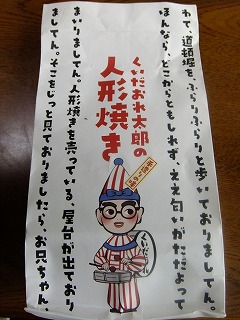 わて、道頓堀を、ぶらりぶらりと歩いておりましてん。
ほんなら、どこからともしれず、ええ匂いがただよって
くいだおれ太郎の
人形焼き
まいりましてん。人形焼きを売っている、屋台が出ており
ましてん。そこをじっと見ておりましたら、お兄ちゃん、
くいだおれ